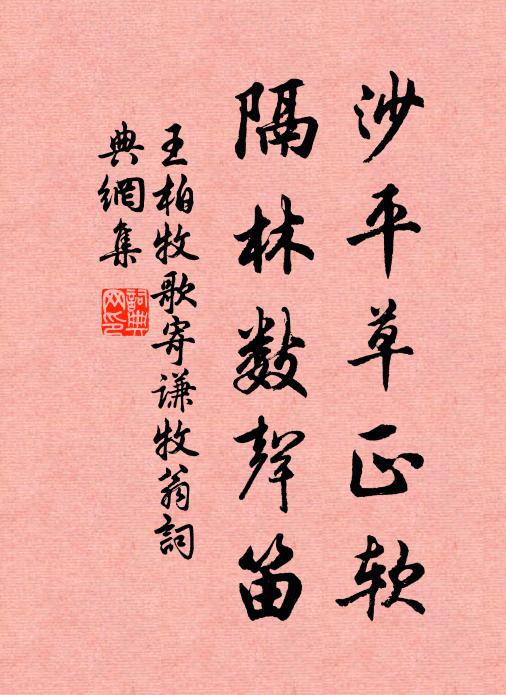 沙平草正软
隔林数聲笛
王柏牧歌寄谦牧翁詞
典網集
詞典网印